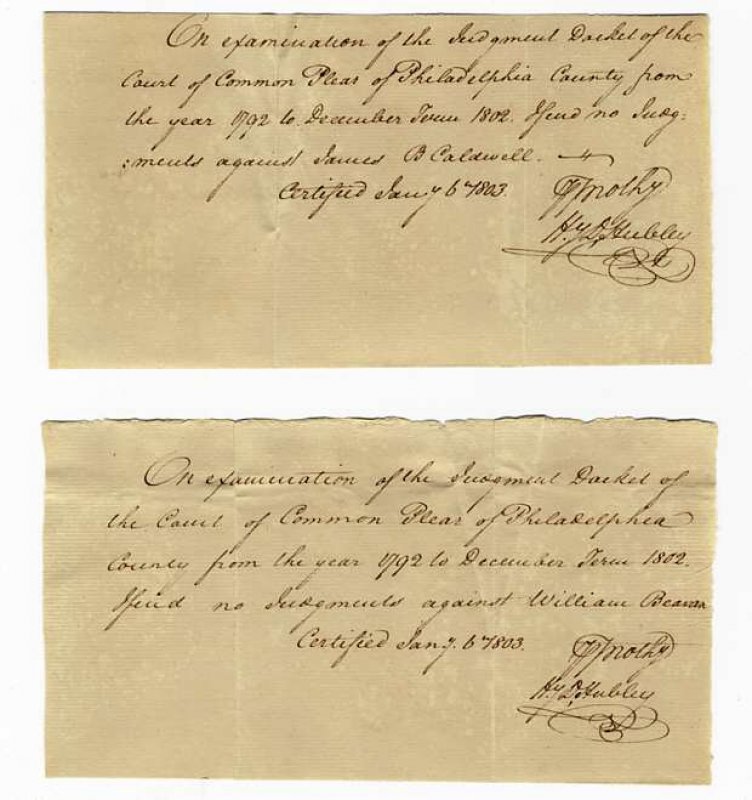 On examination of the Judgment Docket of the
Court of Common Pleas of Philadelphia County from
the year 1792 to December Term 1802. I find no Judg:
:ments against James B Caldwell.
Certified Jany 6th 1803.
Timothy
H.y D. Hubley
On examination of the Judgment Docket of
the Court of Common Pleas of Philadelphia
County from the year 1792 to December Term 1802.
I find no Judgments against William Beavan
Certified Jany. 6th 1803.
Timothy
H.y D. Hubley